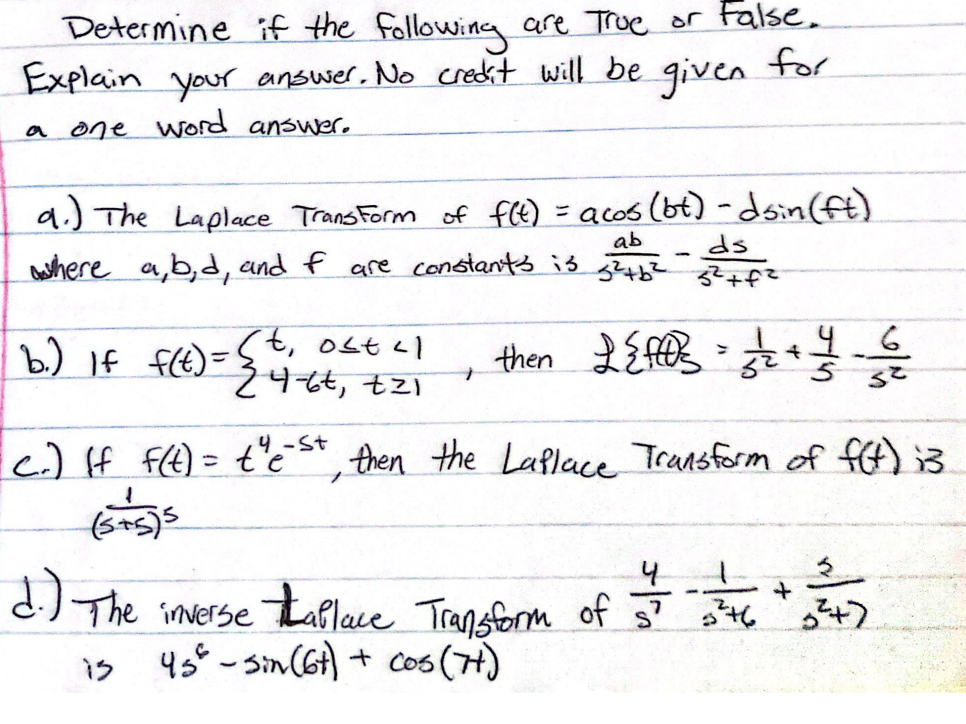 Determine if the following are True or False.
Explain your answer. No credit will be given for
a one word answer.
a.) The Laplace Transform of f(t) = acos(bt) - dsin(ft)
where a,b,d, and f are constants is ab/(s²+b²) - ds/(s²+f²)
b.) If f(t) = { t, 0≤t<1 ; 4-6t, t≥1 , then ℒ{f(t)} = 1/s² + 4/s - 6/s²
c.) If f(t) = t⁴e^(-5t), then the Laplace Transform of f(t) is
1/(s+5)⁵
d.) The inverse Laplace Transform of 4/s⁷ - 1/(s²+6) + s/(s²+7)
is 4s⁶ - sin(6t) + cos(7t)